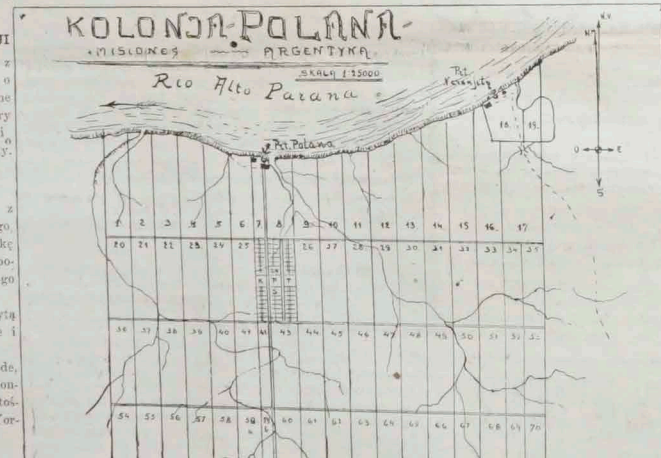 KOLONJA-POLANA-
MISIONES — ARGENTYNA
SKALA 1:25000
Rio Alto Parana
Pct. Naranjito
Pct. Polana
N
O E
S
18. 19.
1 2 3 4 5 6 7 8 9 10 11 12 13 14 15 16 17
20 21 22 23 24 25 26 27 28 29 30 31 32 33 34 35
36 37 38 39 40 41 43 44 45 46 47 48 49 50 51 52 53
54 55 56 57 58 60 61 62 63 64 65 66 67 68 69 70